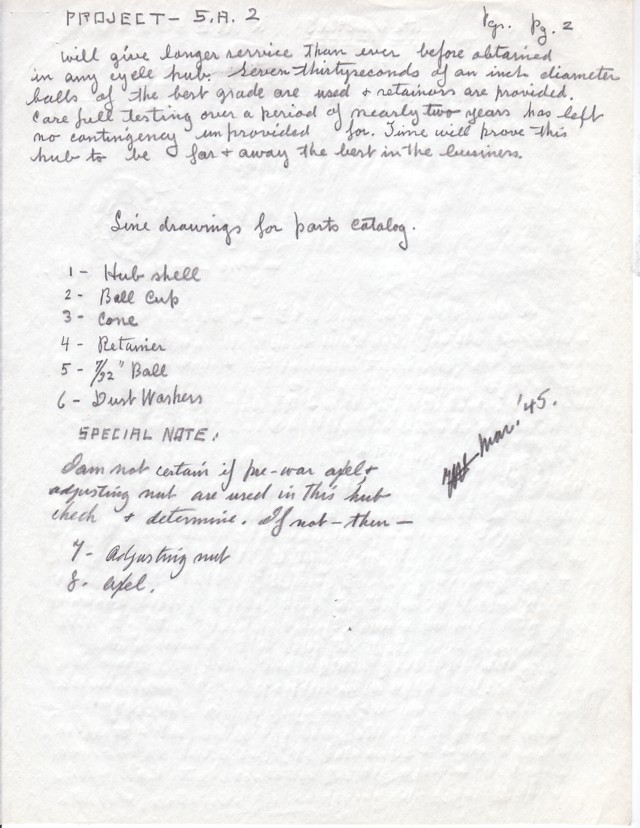 PROJECT - S.A. 2 Pgr. Pg. 2
will give longer service than ever before obtained
in any cycle hub. Seven thirtyseconds of an inch diameter
balls of the best grade are used & retainors are provided.
Care full testing over a period of nearly two years has left
no contingency unprovided for. Time will prove this
hub to be far & away the best in the business.
Line drawings for parts catalog.
1 - Hub shell
2 - Ball Cup
3 - Cone
4 - Retainer
5 - 7/32" Ball
6 - Dust Washers
Mar. '45.
SPECIAL NOTE:
I am not certain if pre-war axel &
adjusting nut are used in this hub
check & determine. If not - then -
7 - Adjusting nut
8 - axel.